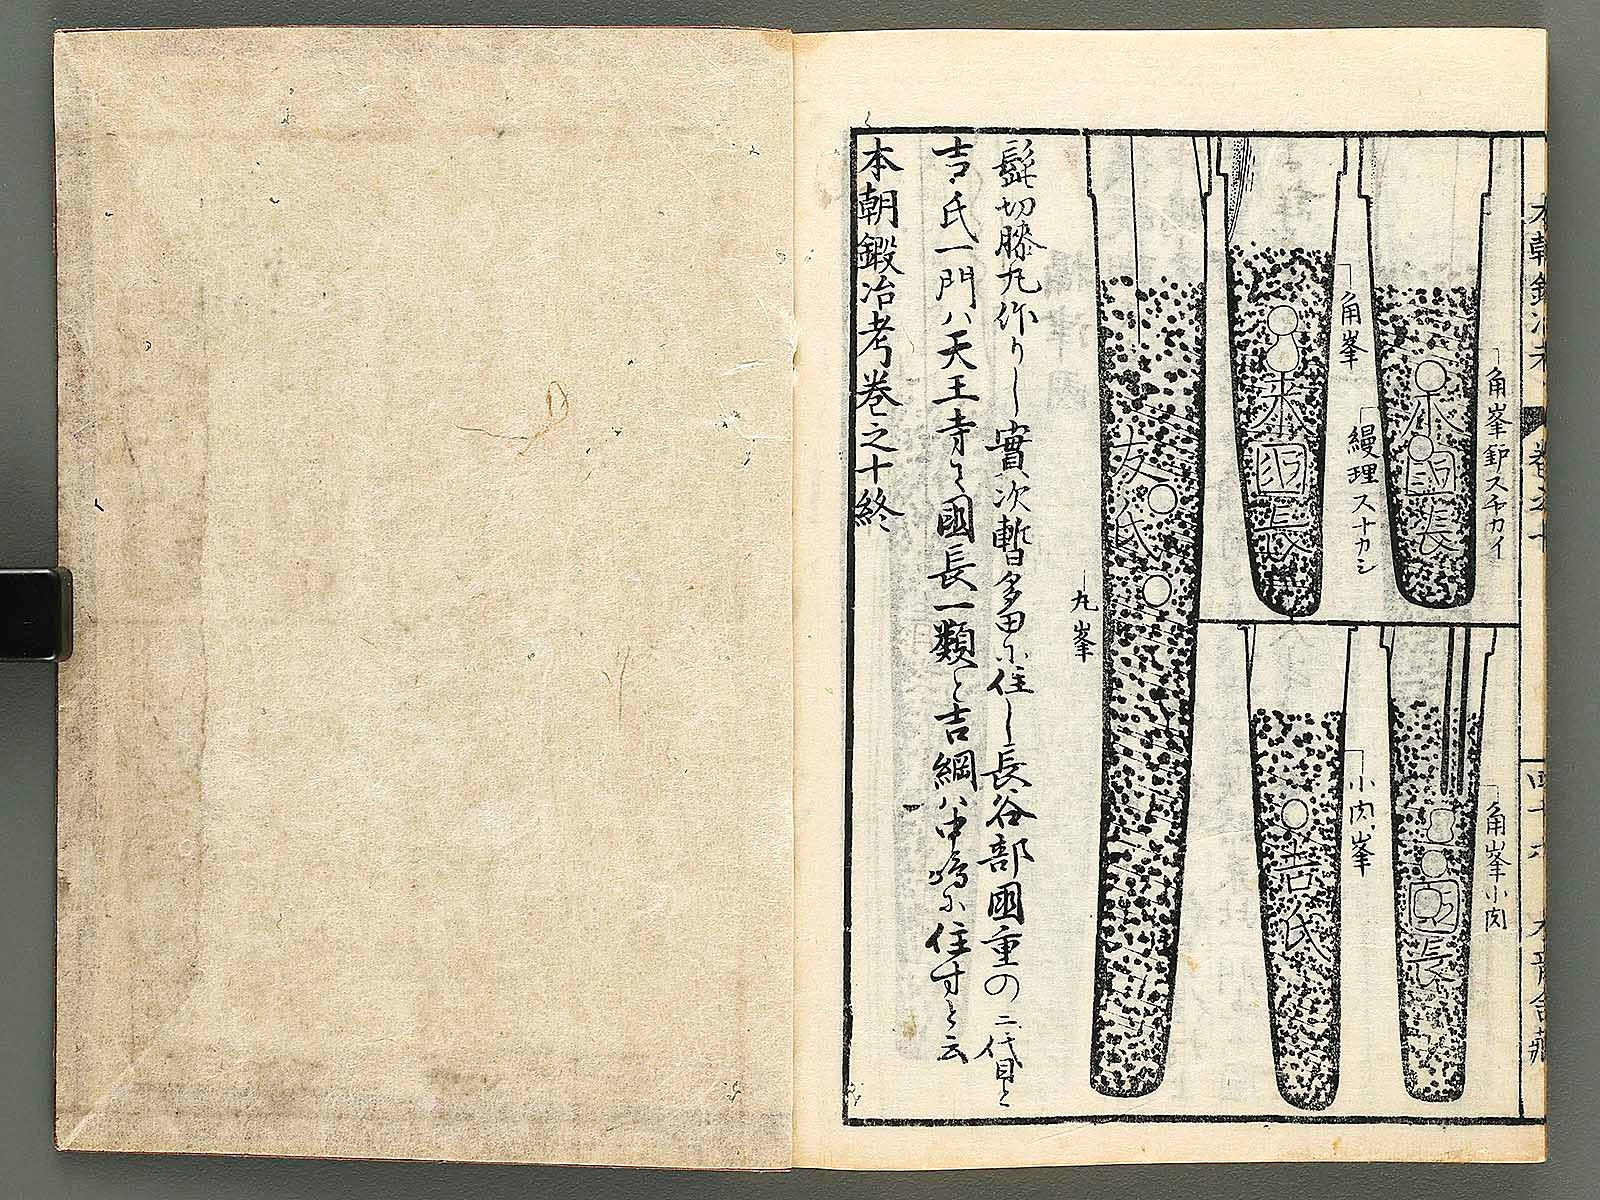 角峯鈩スチカイ
來國長
角峯
縵理スナカシ
來國長
角峯小肉
國長
小肉峯
吉氏
友氏
丸峯
髭切膝丸作りし實次暫多田ニ住し長谷部國重の二代目と
吉氏一門ハ天王寺と國長一類と吉綱ハ中嶋ニ住すと云
本朝鍛冶考巻之十終